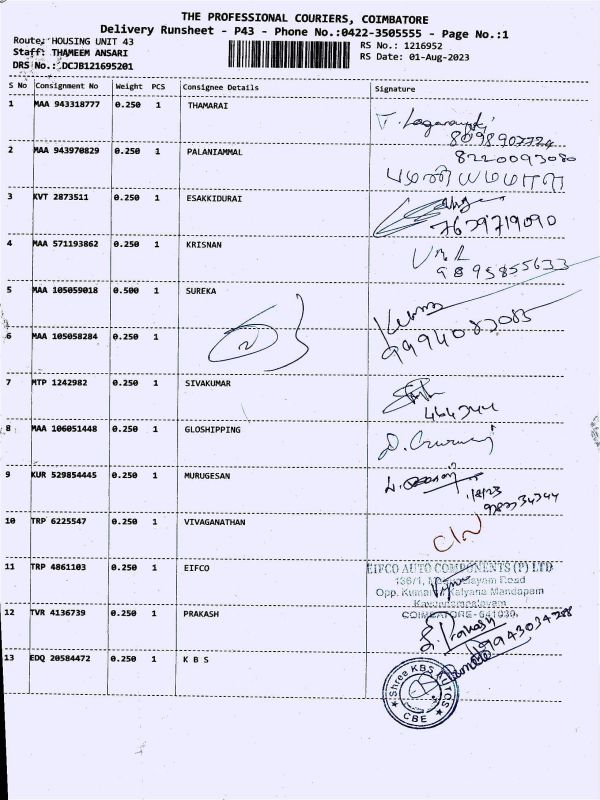 THE PROFESSIONAL COURIERS, COIMBATORE
Delivery Runsheet - P43 - Phone No.:0422-3505555 - Page No.:1
Route: HOUSING UNIT 43
RS No.: 1216952
Staff: THAMEEM ANSARI
RS Date: 01-Aug-2023
DRS No.: DCJB121695201
S No Consignment No Weight PCS Consignee Details Signature
1 MAA 943318777 0.250 1 THAMARAI
8098907724
2 MAA 943970829 0.250 1 PALANIAMMAL
8220093080
பழனியம்மாள்
3 KVT 2873511 0.250 1 ESAKKIDURAI
7639719090
4 MAA 571193862 0.250 1 KRISNAN
9895855633
5 MAA 105059018 0.500 1 SUREKA
6 MAA 105058284 0.250 1
9994082085
7 MTP 1242982 0.250 1 SIVAKUMAR
8 MAA 106051448 0.250 1 GLOSHIPPING
9 KUR 529854445 0.250 1 MURUGESAN
10 TRP 6225547 0.250 1 VIVAGANATHAN
C/N
11 TRP 4861103 0.250 1 EIFCO
EIFCO AUTO COMPONENTS (P) LTD
136/1, Road
Opp. Kalyana Mandapam
COIMBATORE- 641030.
12 TVR 4136739 0.250 1 PRAKASH
Prakash
9943034288
13 EDQ 20584472 0.250 1 K B S
Shree KBS AUTOS
CBE